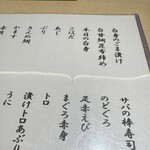 白身のごま漬け
白甘鯛昆布締め
本日の白身
こはだ
あじ
さば
きんめ鯛
かます
サバの棒寿司
のどぐろ
足赤えび
まぐろ赤身
トロ
漬けトロあぶり
うに